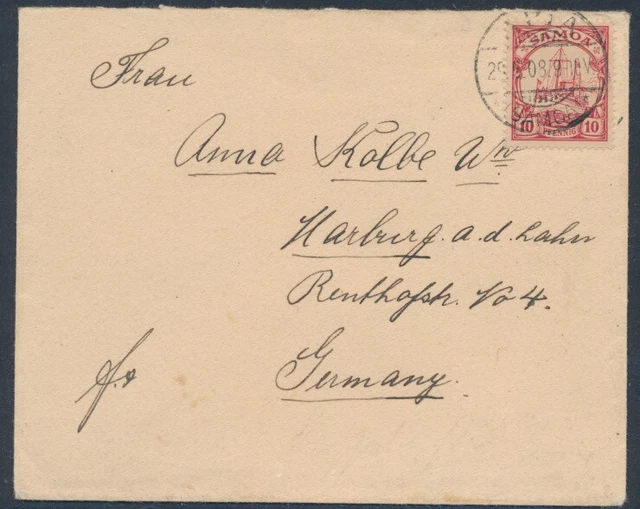 SAMOA
10 PFENNIG 10
APIA
08
SAMOA
Frau
Anna Kolbe Wn
Marburg a. d. Lahn
Renthofstr. No 4.
Germany.